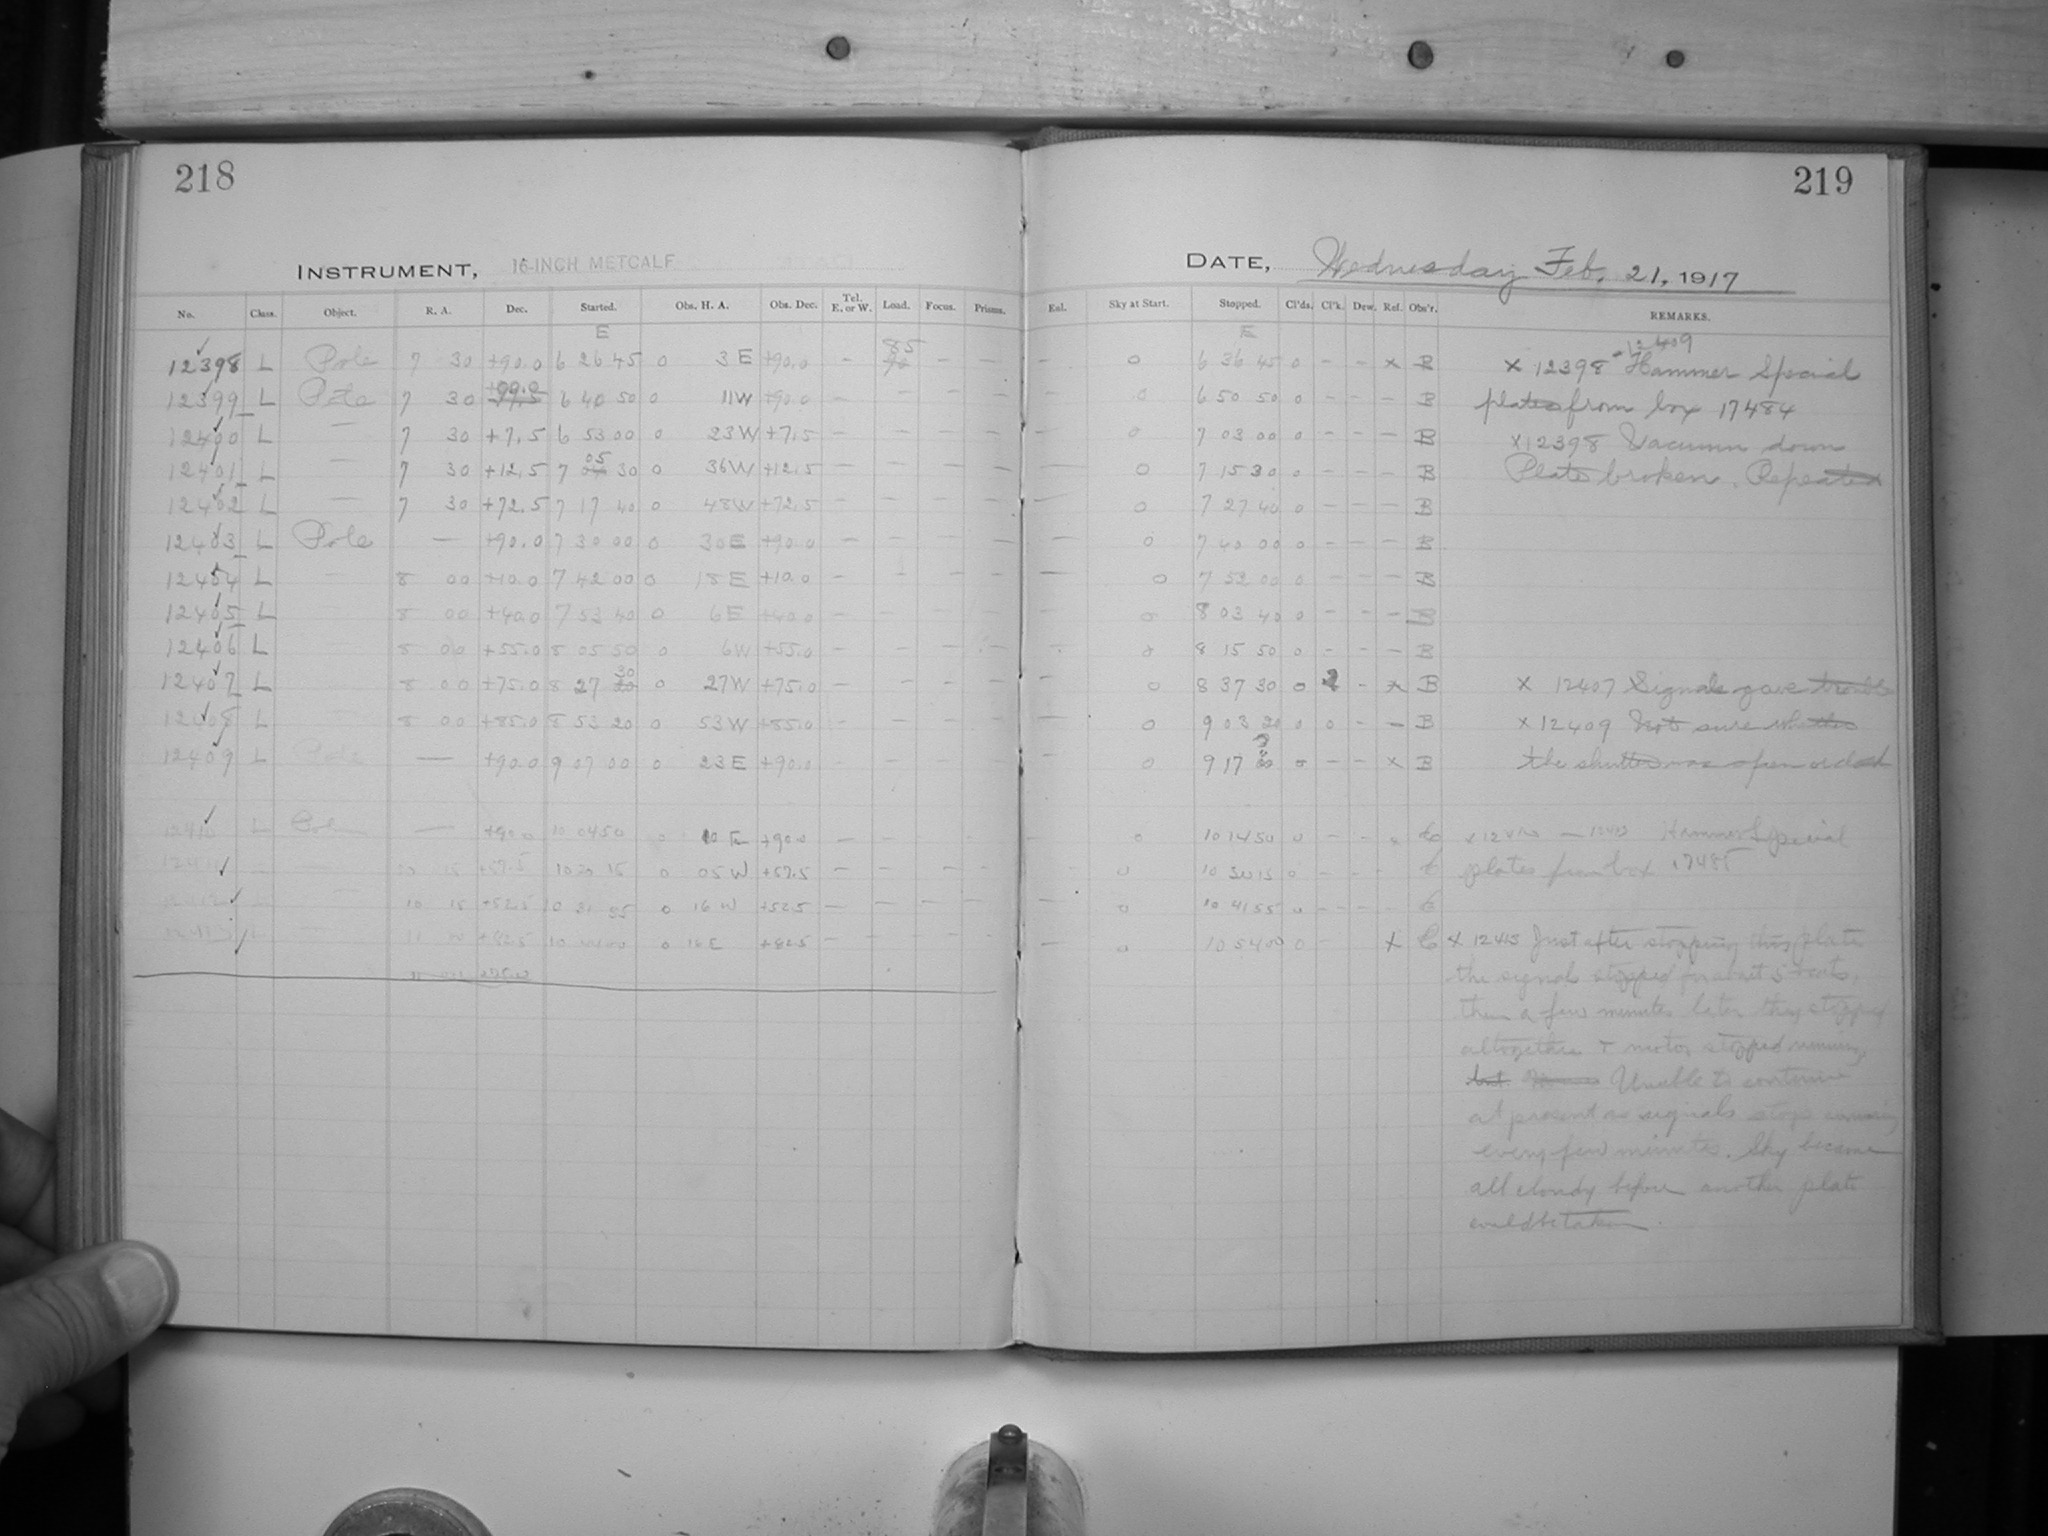 218
219
INSTRUMENT, 16-INCH METCALF
DATE, Wednesday Feb. 21, 1917
No. Class. Object. R. A. Dec. Started. Obs. H. A. Obs. Dec. Tel. E. or W. Load. Focus. Prisms. Exl. Sky at Start. Stopped. Cl'ds. Cl'k. Dew. Ref. Obs'r. REMARKS.
E E
12398 L Pole 7 30 +90.0 6 26 45 0 3 E +90.0 — 85 — — — 0 6 36 45 0 – – x B x 12398 - 12409 Hammer Special
12399 L Pole 7 30 +90.0 6 40 50 0 11W +90.0 — — — — — 0 6 50 50 0 – – – B plates from box 17484
12400 L — 7 30 +7.5 6 53 00 0 23W +7.5 — — — — — 0 7 03 00 0 – – – B x12398 Vacuum down
12401 L — 7 30 +12.5 7 05 30 0 36W +12.5 — — — — — 0 7 15 30 0 – – – B Plate broken. Repeated
12402 L — 7 30 +72.5 7 17 40 0 48W +72.5 — — — — — 0 7 27 40 0 – – – B
12403 L Pole — +90.0 7 30 00 0 30E +90.0 — — — — — 0 7 40 00 0 – – – B
12404 L — 8 00 +10.0 7 42 00 0 18 E +10.0 — — — — — 0 7 52 00 0 – – – B
12405 L — 8 00 +40.0 7 53 40 0 6E +40.0 — — — — — 0 8 03 40 0 – – – B
12406 L — 8 00 +55.0 8 05 50 0 6W +55.0 — — — — — 0 8 15 50 0 – – – B
12407 L — 8 00 +75.0 8 27 30 0 27W +75.0 — — — — — 0 8 37 30 0 – x B x 12407 Signals gave trouble
12408 L — 8 00 +85.0 8 53 20 0 53W +85.0 — — — — — 0 9 03 20 0 0 – – B x 12409 Not sure whether
12409 L Pole — +90.0 9 07 00 0 23 E +90.0 — — — — — 0 9 17 0 – – x B the shutter was open or closed
12410 L Pole — +90.0 10 04 50 0 10 E +90.0 — — — — — 0 10 14 50 0 – – x C x 12410 — 12413 Hammer Special
12411 — 15 +57.5 10 20 15 0 05 W +57.5 — — — — — 0 10 30 15 0 – – – C plates from box 17485
12412 — 10 15 +52.5 10 31 55 0 16 W +52.5 — — — — — 0 10 41 55 0 – – – C
12413 L — 11 00 +42.5 10 44 00 0 16 E +42.5 — — — — — 0 10 54 00 0 – x C x 12413 Just after stopping this plate
the signals stopped for about 5 beats,
then a few minutes later they stopped
altogether & motor stopped running
but Unable to continue
at present as signals stop coming
every few minutes. Sky became
all cloudy before another plate
could be taken.